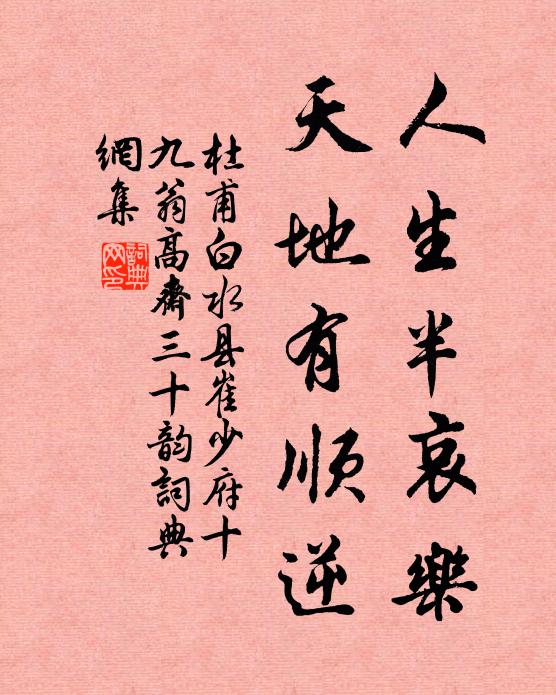 人生半哀樂
天地有順逆
杜甫白水县崔少府十
九翁高齋三十韵詞典
網集
詞典
网印